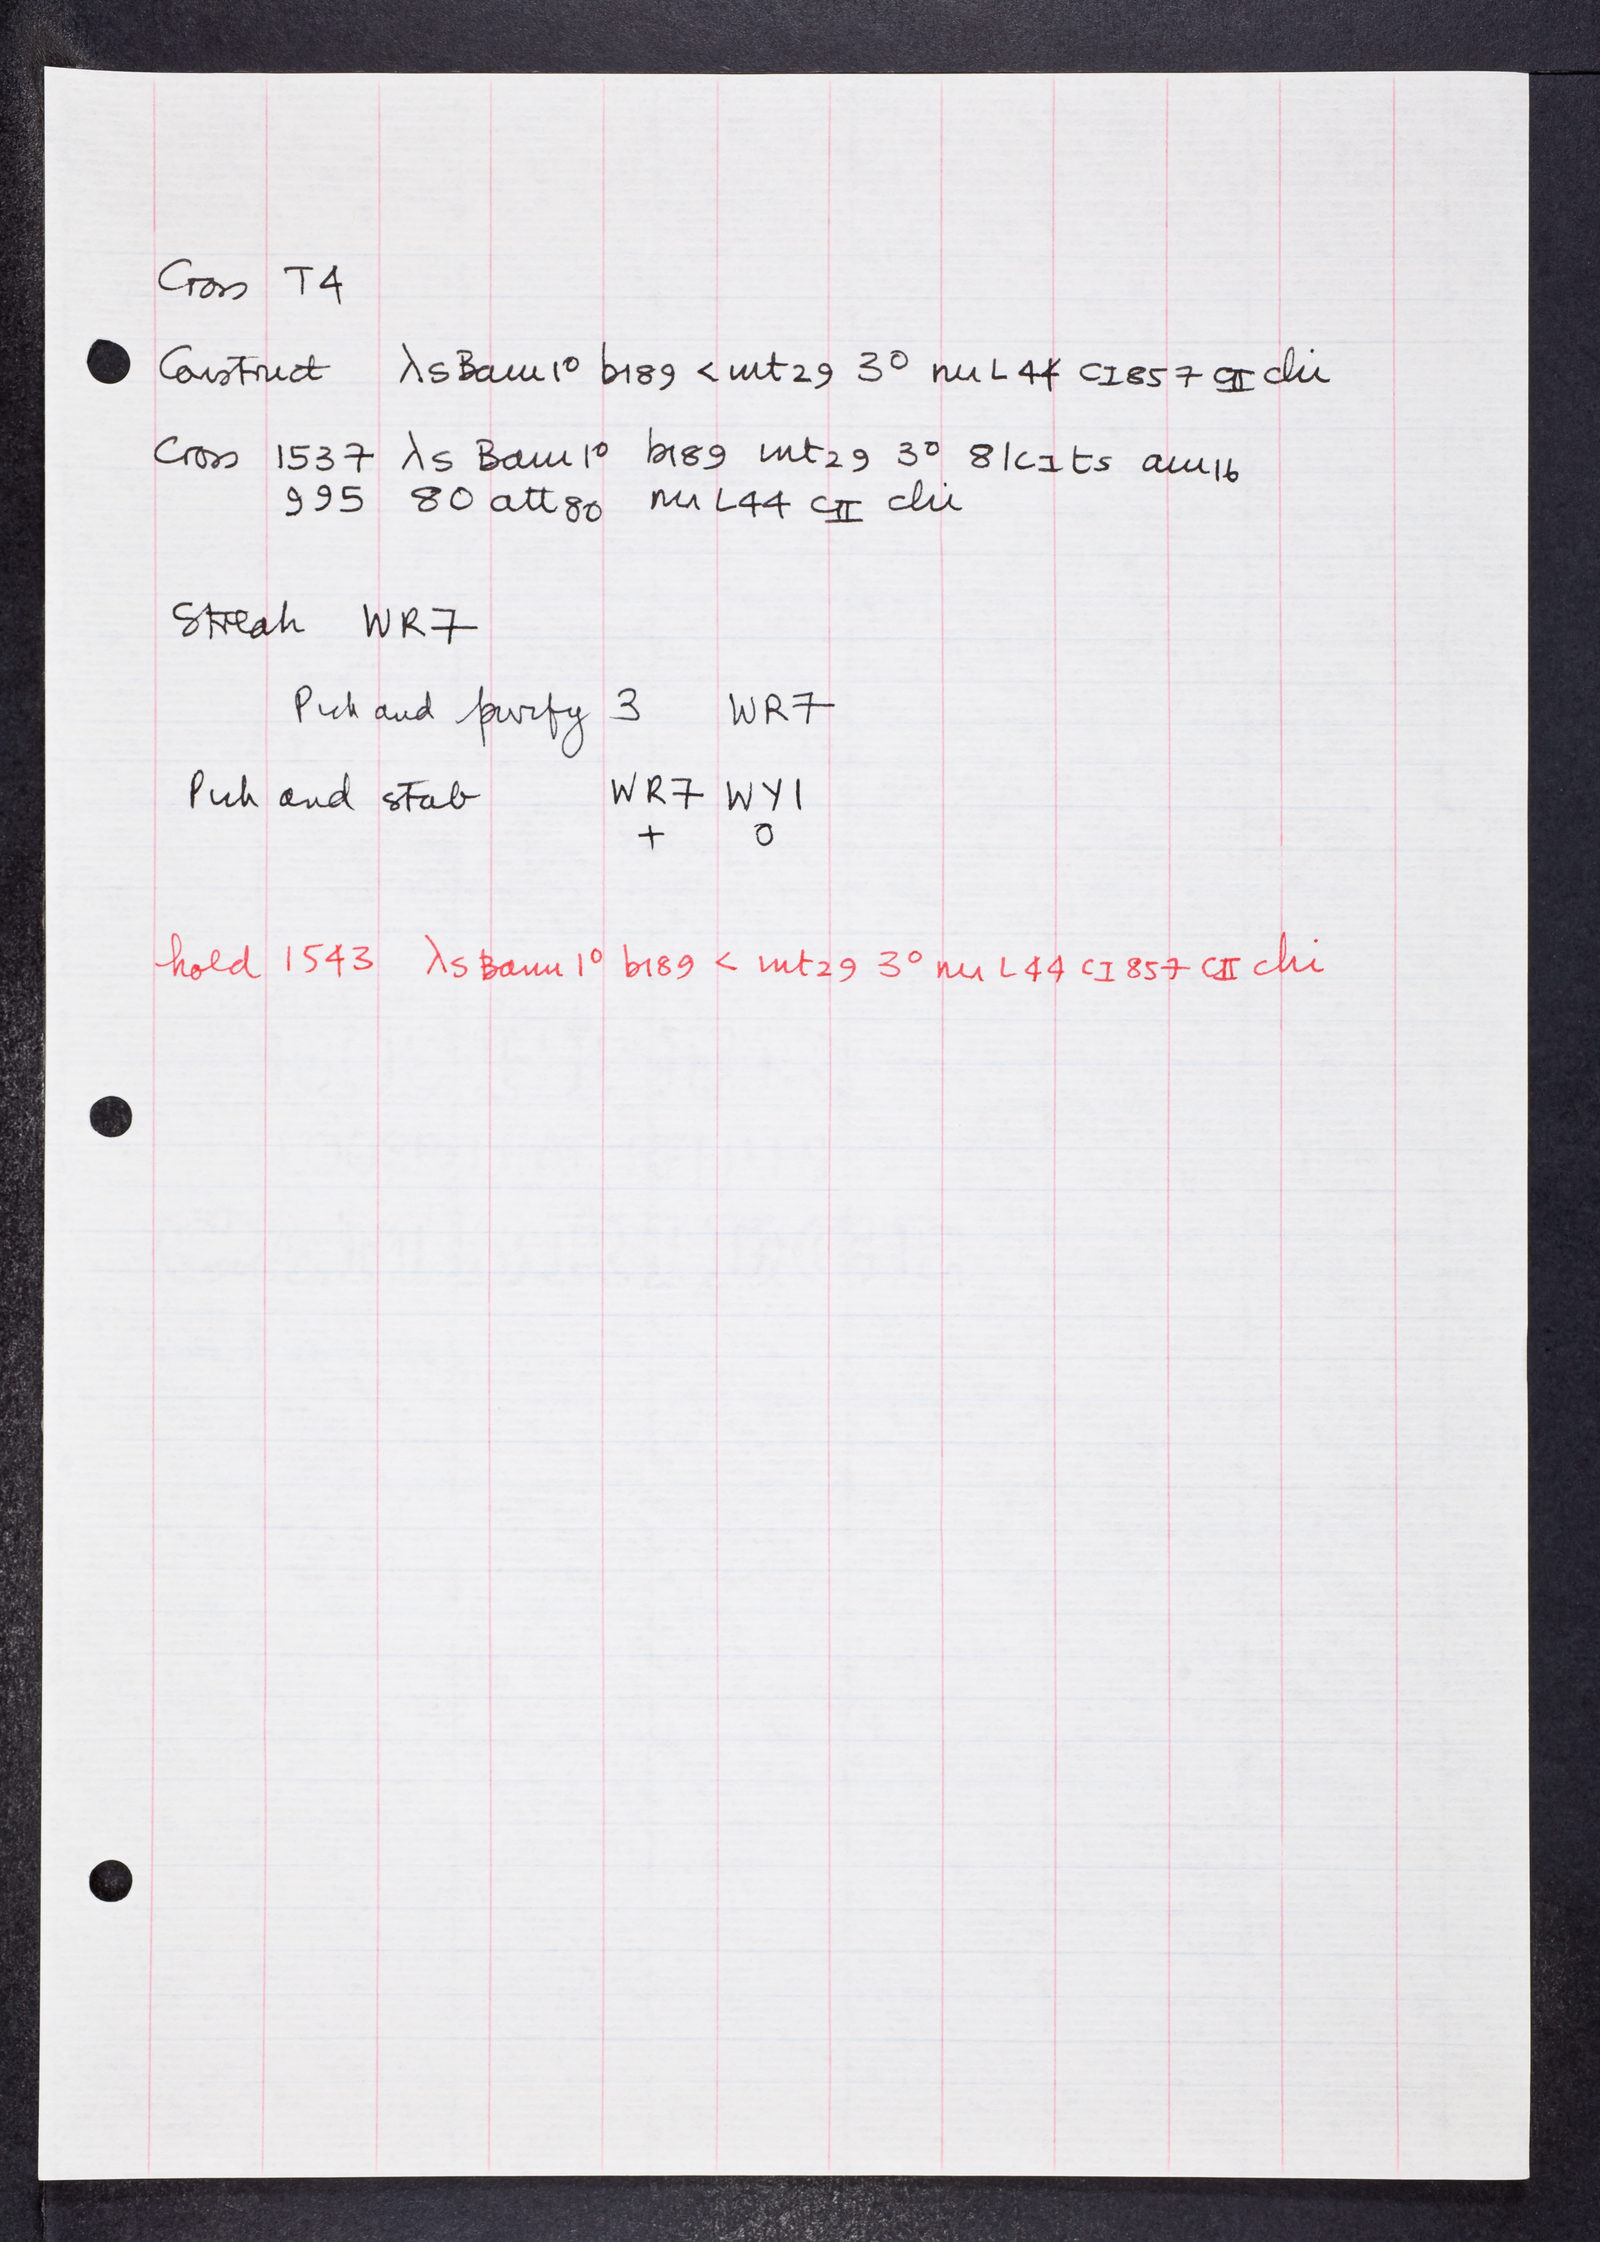 Cross T4
Construct λs Bam 1° b189 < int29 3° nin L44 cI857 cII chi
Cross 1537 λs Bam 1° b189 int29 3° 81cIts am16
995 80 att80 nin L44 cII chi
Streak WR7
Pick and purify 3 WR7
Pick and stab WR7 WY1
+ 0
hold 1543 λs Bam 1° b189 < int29 3° nin L44 cI857 cII chi